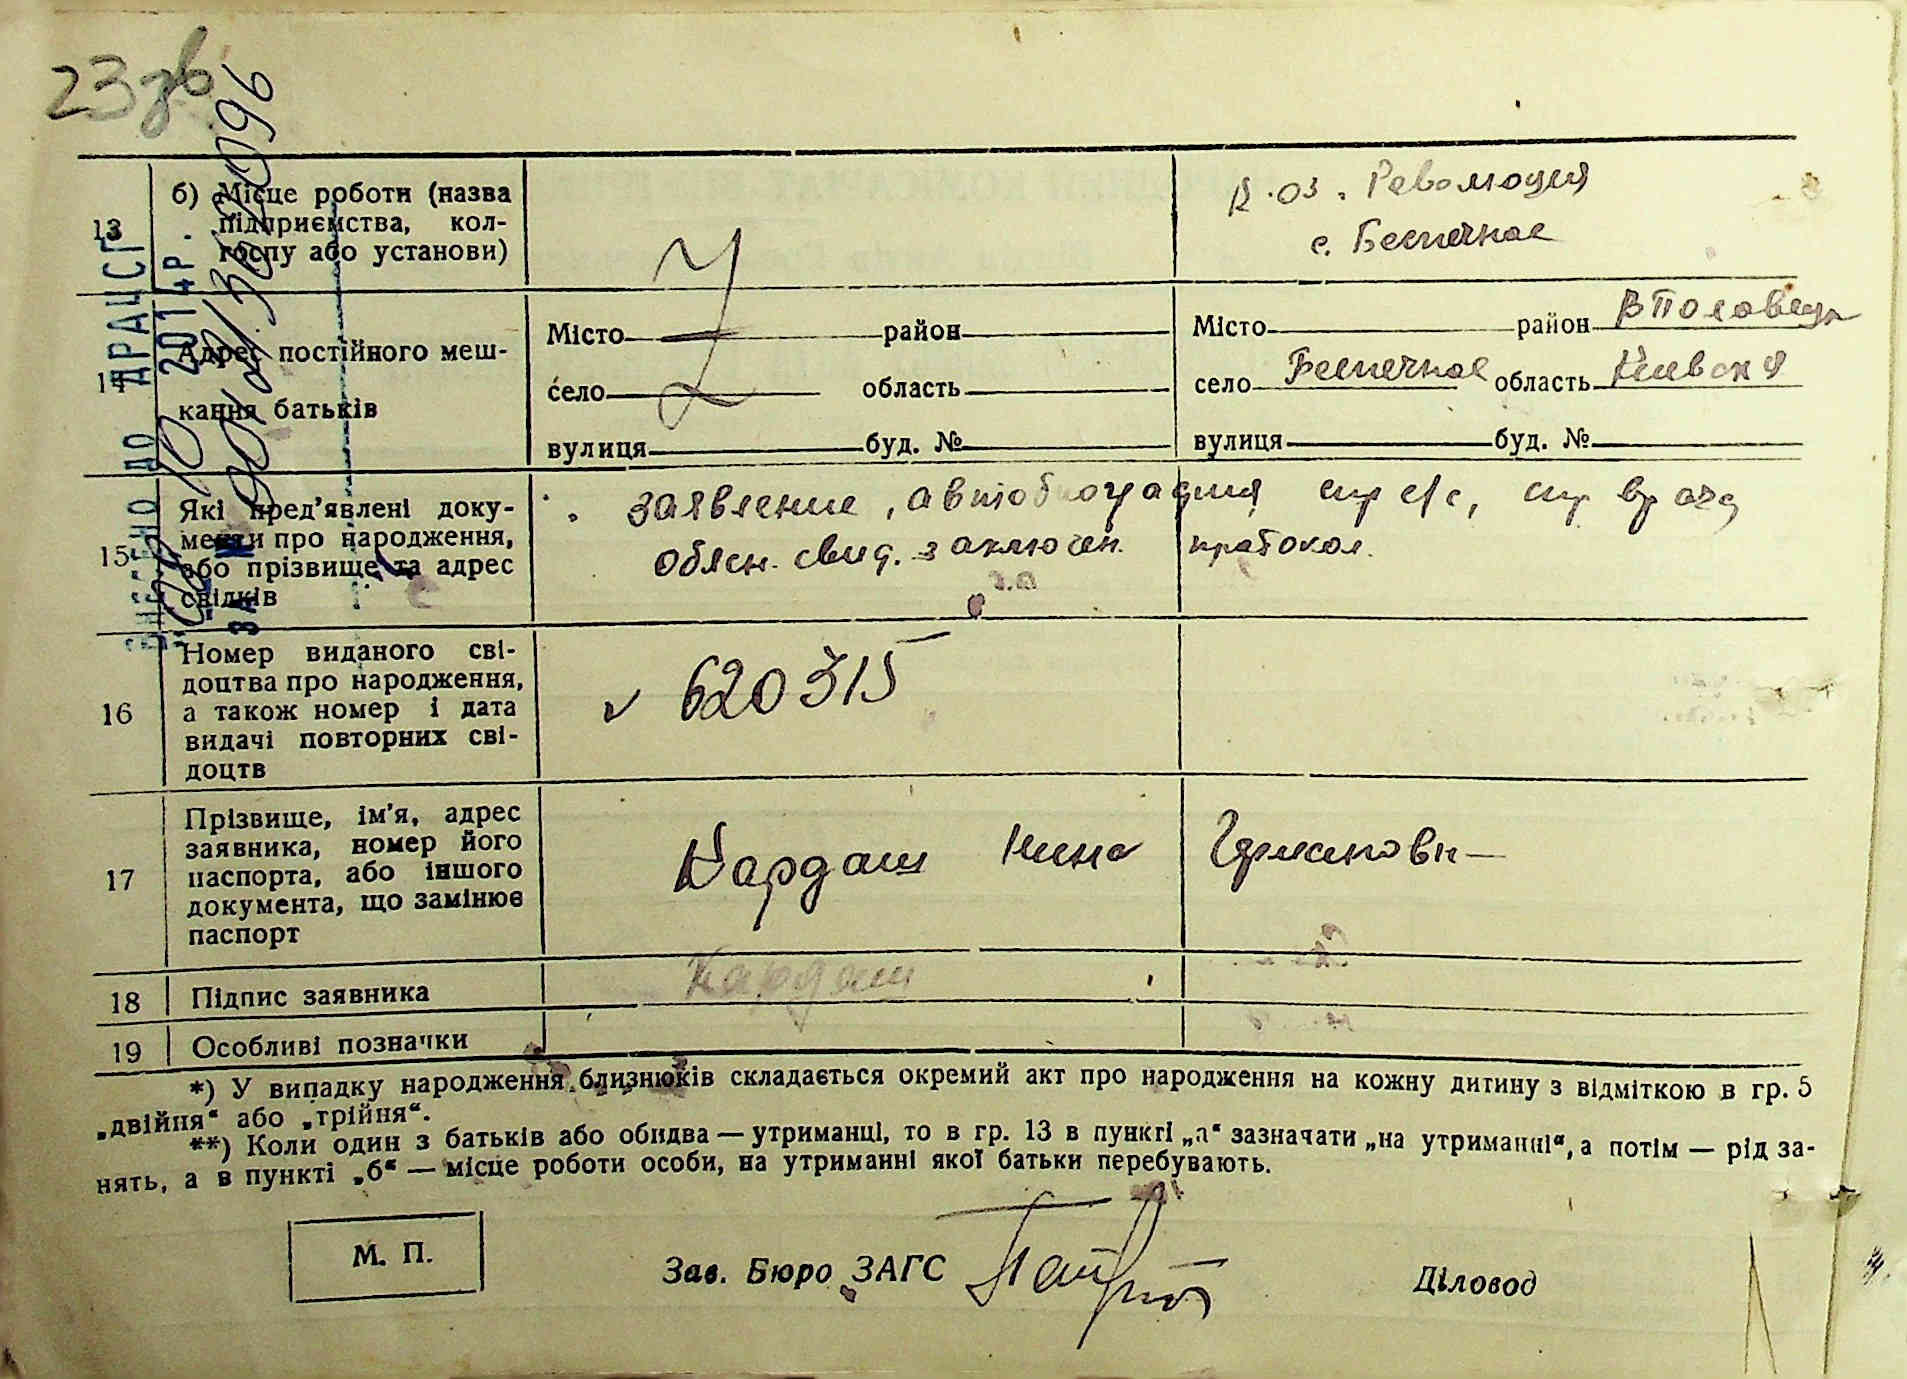 23 зв
ВНЕСЕНО ДО ДРАЦСГ
2014 Р.
ЗА №
13 б) Місце роботи (назва підприємства, кол-
госпу або установи)
к-оз. Революция
с. Беспечное
14 Адрес постійного меш-
кання батьків
Місто район
село область
вулиця буд. №
Місто район В Половецк
село Беспечное область Киевская
вулиця буд. №
15 Які пред’явлені доку-
менти про народження,
або прізвище та адрес
свідків
заявление, автобиография спр с/с, спр врача
обясн. свид. заключен. протокол.
16 Номер виданого сві-
доцтва про народження,
а також номер і дата
видачі повторних сві-
доцтв
620315
17 Прізвище, ім’я, адрес
заявника, номер його
паспорта, або іншого
документа, що замінює
паспорт
Кардаш Нина
18 Підпис заявника Кардаш
19 Особливі позначки
*) У випадку народження близнюків складається окремий акт про народження на кожну дитину з відміткою в гр. 5
„двійня“ або „трійня“.
**) Коли один з батьків або обидва — утриманці, то в гр. 13 в пункті „а“ зазначати „на утриманні“, а потім — рід за-
нять, а в пункті „б“ — місце роботи особи, на утриманні якої батьки перебувають.
М. П.
Зав. Бюро ЗАГС
Діловод